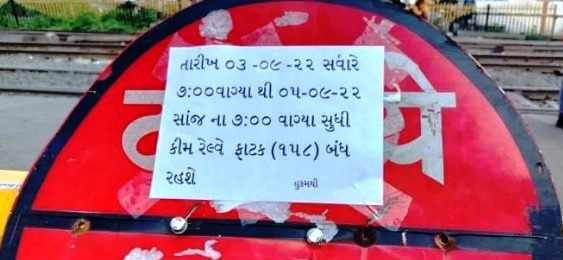 તારીખ ૦૩ -૦૯ -૨૨ સવારે
૭:૦૦વાગ્યા થી ૦૫-૦૯-૨૨
સાંજ ના ૭:૦૦ વાગ્યા સુધી
કીમ રેલ્વે ફાટક (૧૫૮) બંધ
રહશે
હુકમથી